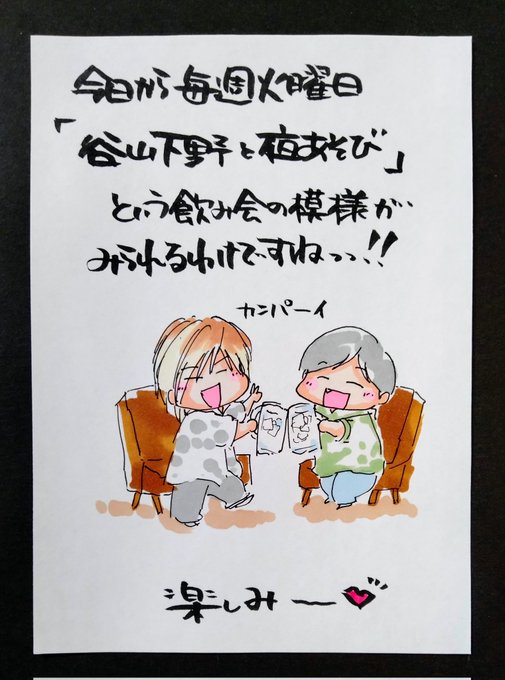 今日から毎週火曜日
「谷山下野子と夜あそび」
という飲み会の模様が
みられるわけですねっっ!!
カンパーイ
楽しみー